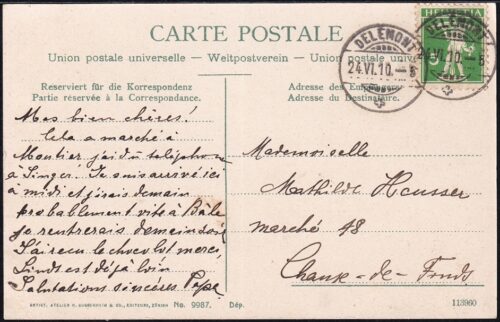 CARTE POSTALE
Union postale universelle – Weltpostverein – Union postale univers
Reserviert für die Korrespondenz
Partie réservée à la Correspondance.
Adresse des Em
Adresse du Destinataire.
HELVETIA
DELÉMONT
24.VI.10.–5
DELÉMONT
24.VI.10.–5
Mes bien chères!
Cela a marché à
Moutier, j'ai dû téléphon
à Singer. Je suis arrivé ici
à midi et j'irais demain
probablement vite à Bâle
je rentrerais demain soir
J'ai reçu le chocolat merci,
Lind est déjà loin
Salutations sincères Papa
Mademoiselle
Mathilde Heusser
marché 48
Chaux-de-Fonds
ARTIST. ATELIER H. GUGGENHEIM & CO., EDITEURS, ZÜRICH No. 9987. Dép.
113960